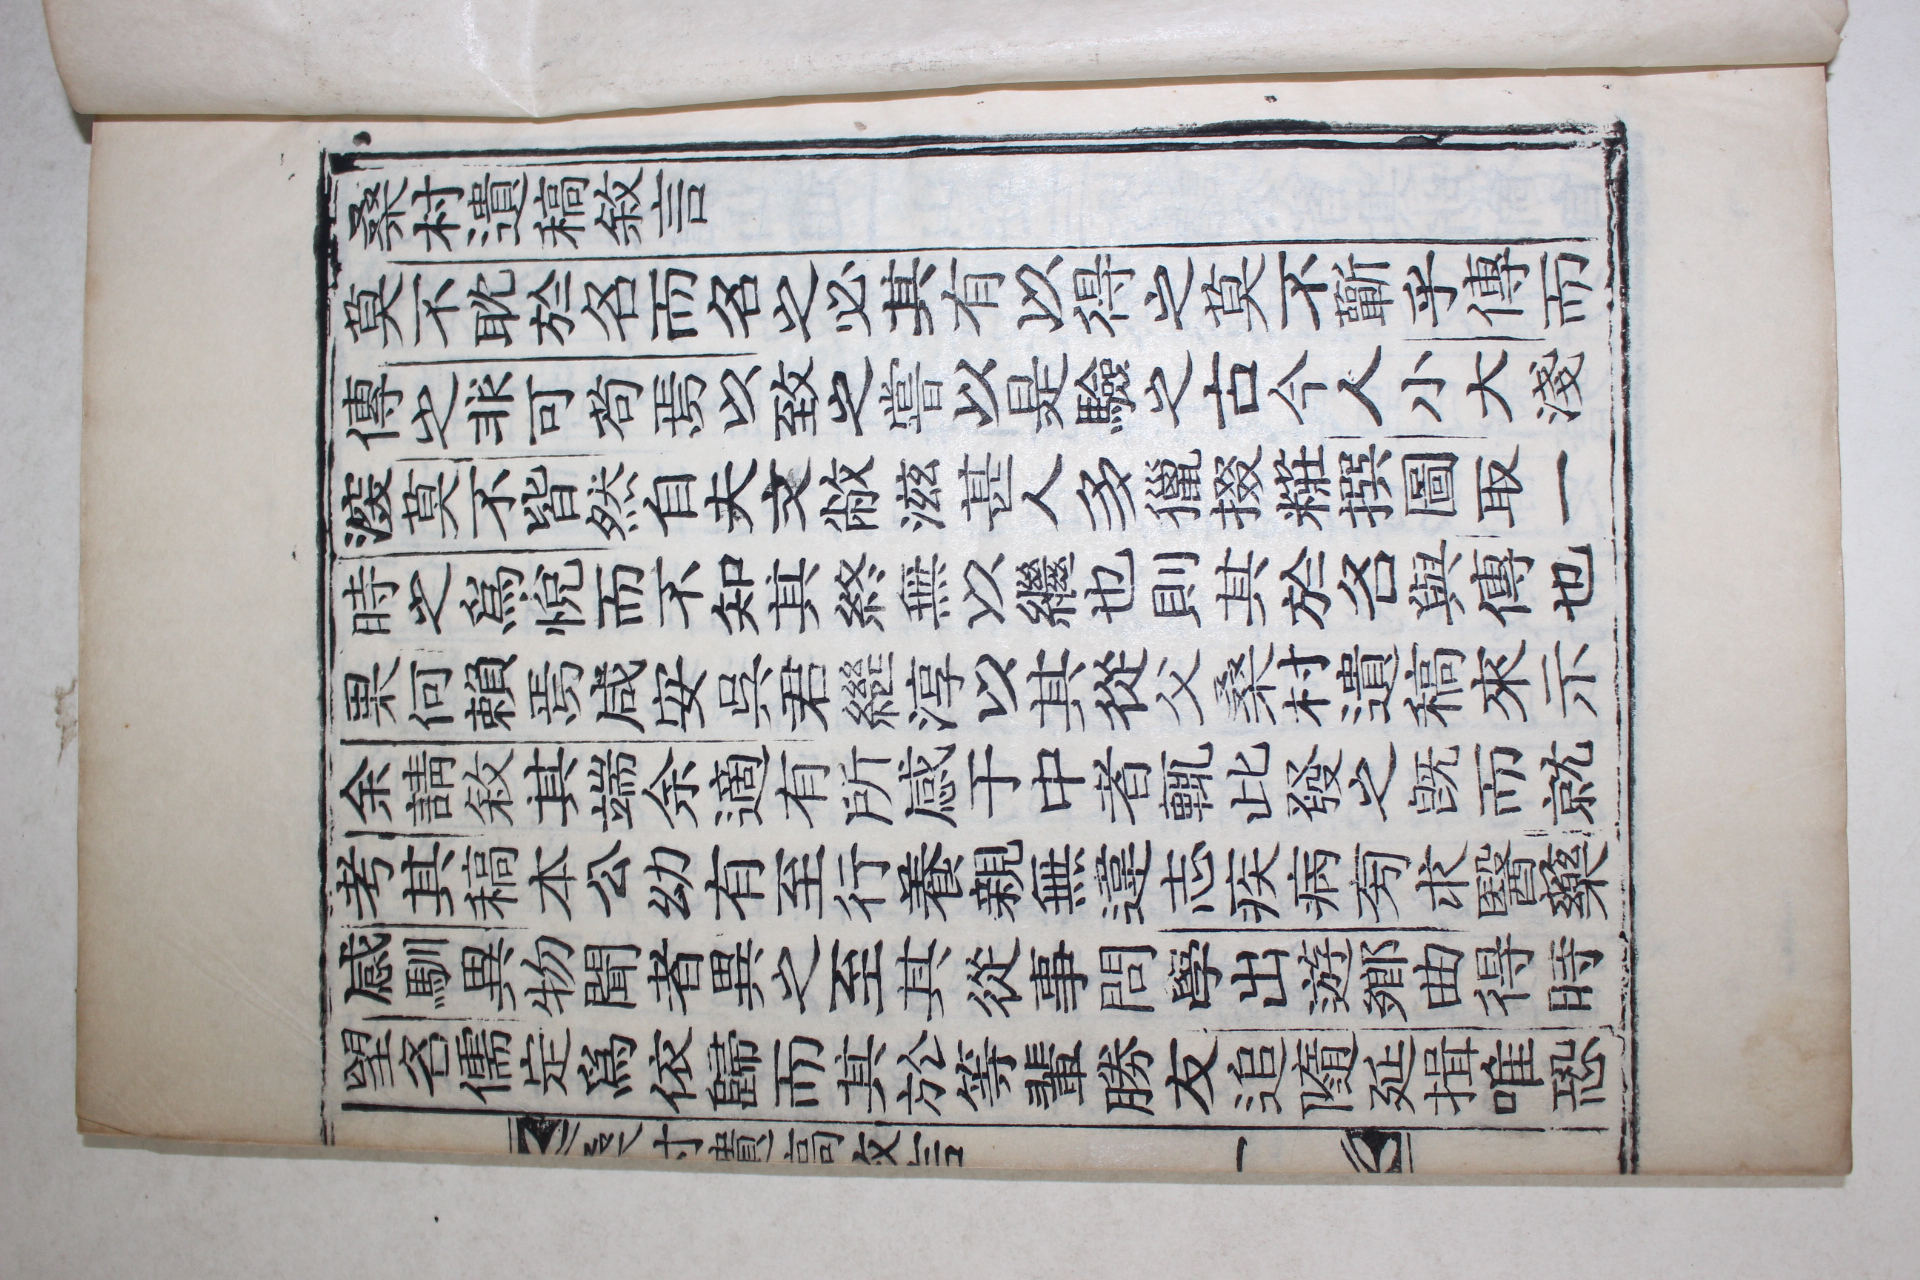 桑村遺稿敘言
莫不耽於名而名之必其有以得之莫不蘄乎傳而
傳之非可苟焉以致之嘗以是驗之古今人小大淺
深莫不皆然自夫文敝滋甚人多獵掇粧撰圖取一
時之爲悅而不知其終無以繼也則其於名與傳也
果何賴焉咸安吳君繼淳以其從父桑村遺稿來示
余請敘其端余適有所感于中者輒比發之旣而就
考其稿本公幼有至行養親無違志疾病旁求醫藥
感馴異物聞者異之至其從事問學出遊鄕曲得時
望名儒定爲依歸而其於等輩勝友追隨延揖唯恐
桑村遺稿敘言 一